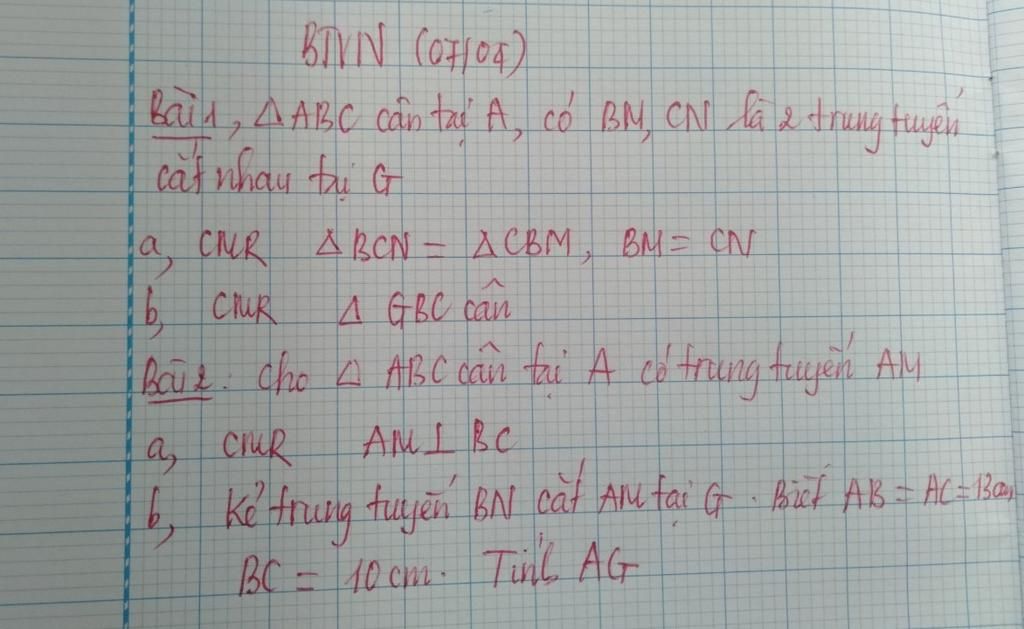 BTVN (07/04)
Bài 1, △ABC cân tại A, có BM, CN là 2 trung tuyến
cắt nhau tại G
a, CMR △BCN = △CBM, BM = CN
b, CMR △ GBC cân
Bài 2. Cho △ ABC cân tại A có trung tuyến AM
a, CMR AM ⊥ BC
b, Kẻ trung tuyến BN cắt AM tại G. Biết AB = AC = 13cm,
BC = 10cm. Tính AG